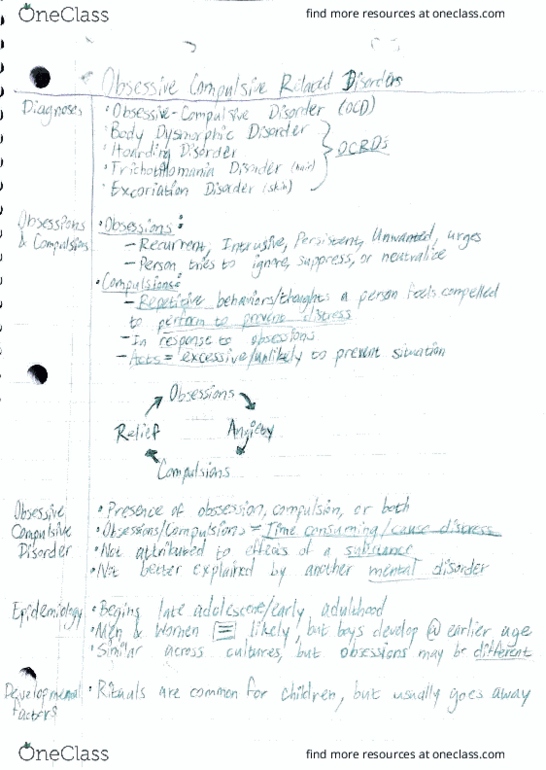 OneClass
find more resources at oneclass.com
Obsessive Compulsive Rilaced Disorders
Diagnoses
• Obsessive-Compulsive Disorder (OCD)
• Body Dysmorphic Disorder
• Hoarding Disorder
OCRDs
• Trichotillomania Disorder (hair)
• Excoriation Disorder (skin)
Obsessions & Compulsions
• Obsessions:
– Recurrent, Intrusive, Persistent, Unwanted, urges
– Person tries to ignore, suppress, or neutralize
• Compulsions:
– Repetitive behaviors/thoughts a person feels compelled
to perform to prevent distress
– In response to obsessions
– Acts = excessive/unlikely to prevent situation
Obsessions
Relief
Anxiety
Compulsions
Obsessive
Compulsive
Disorder
• Presence of obsession, compulsion, or both
• Obsessions/Compulsions = Time consuming/cause distress
• Not attributed to effects of a substance
• Not better explained by another mental disorder
Epidemiology
• Begins late adolescene/early adulthood
• Men & Women = likely, but boys develop @ earlier age
• Similar across cultures, but obsessions may be different
Developmental
Factors
• Rituals are common for children, but usually goes away
OneClass
find more resources at oneclass.com